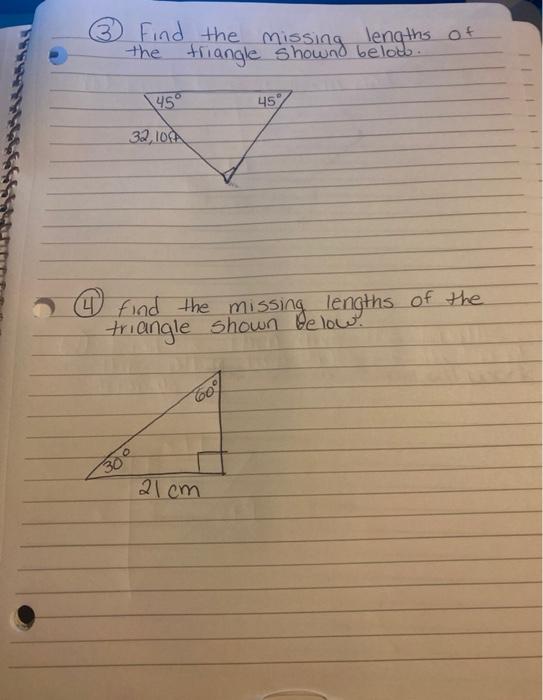 ③ Find the missing lengths of
the triangle shown below.
45° 45°
32,10ft
④ find the missing lengths of the
triangle shown below.
60°
30°
21 cm